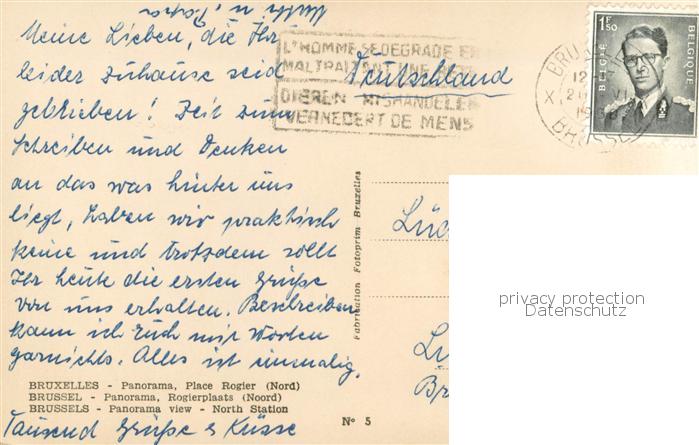 Meine Lieben, die Ihr
leider zuhause seid
geblieben! Zeit zum
Schreiben und Denken
an das was hinter uns
liegt, haben wir praktisch
keine und trotzdem sollt
Ihr heute die ersten Grüße
von uns erhalten. Beschreiben
kann ich Euch mit Worten
garnichts. Alles ist einmalig.
BRUXELLES - Panorama, Place Rogier (Nord)
BRUSSEL - Panorama, Rogierplaats (Noord)
BRUSSELS - Panorama view - North Station
Tausend Grüße & Küsse
Nº 5
Fabrication Fotoprim Bruxelles
L'HOMME SE DEGRADE EN
MALTRAITANT UNE
DIEREN MISHANDELEN
VERNEDERT DE MENS
Deutschland
1F50
BELGIE
BELGIQUE
privacy protection
Datenschutz